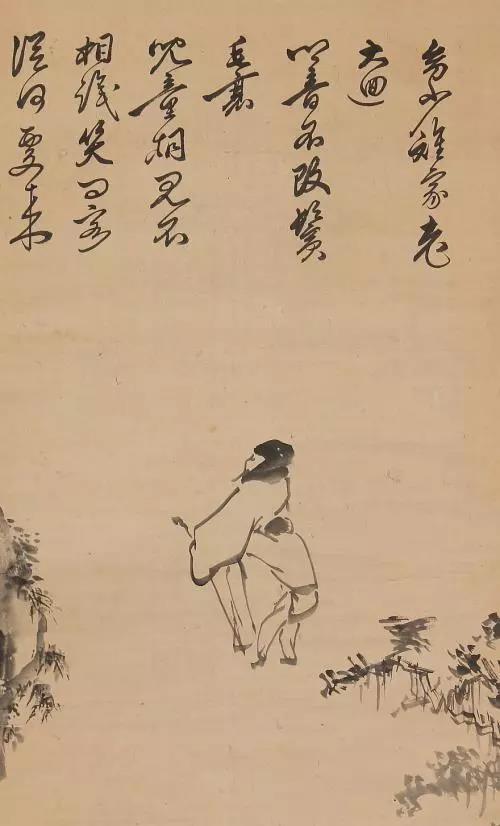 少小離家老
大迴
鄉音不改鬢
毛衰
児童相見不
相識笑問客
從何處来